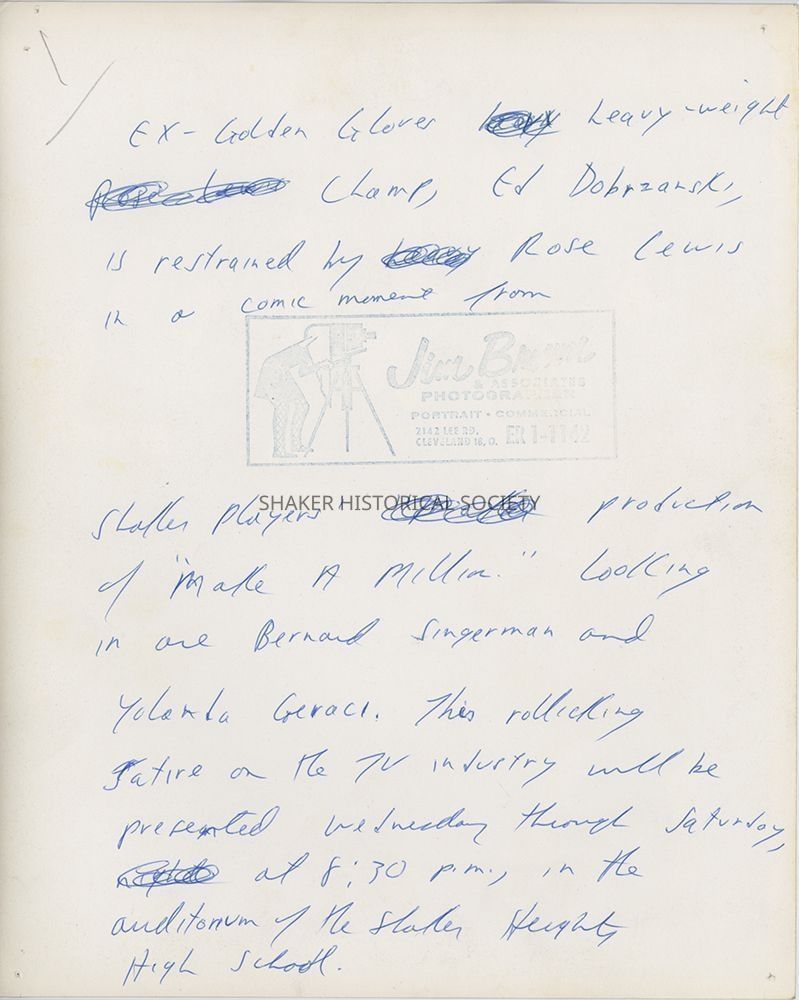 Ex-Golden Gloves heavy-weight
Champ, Ed Dobrzanski,
is restrained by Rose Lewis
in a comic moment from
Jim Brown
& ASSOCIATES
PHOTOGRAPHER
PORTRAIT • COMMERCIAL
2142 LEE RD.
CLEVELAND 18, O. ER 1-1142
SHAKER HISTORICAL SOCIETY
Shaker Players production
of "Make A Million." Looking
in are Bernard Singerman and
Yolanda Geraci. This rollicking
Satire on the TV industry will be
presented Wednesday through Saturday,
at 8:30 p.m., in the
auditorium of the Shaker Heights
High School.